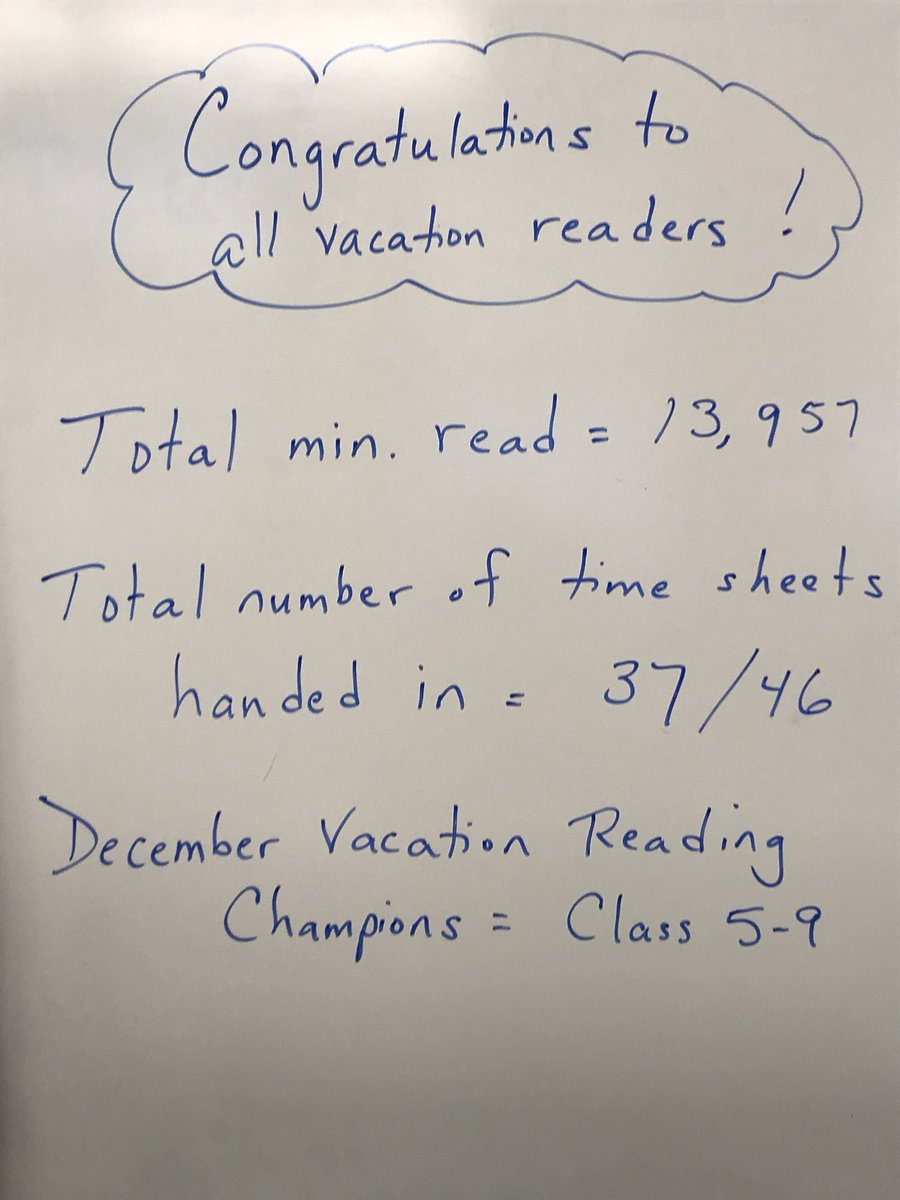 Congratulations to
all vacation readers !
Total min. read = 13,957
Total number of time sheets
handed in = 37/46
December Vacation Reading
Champions = Class 5-9